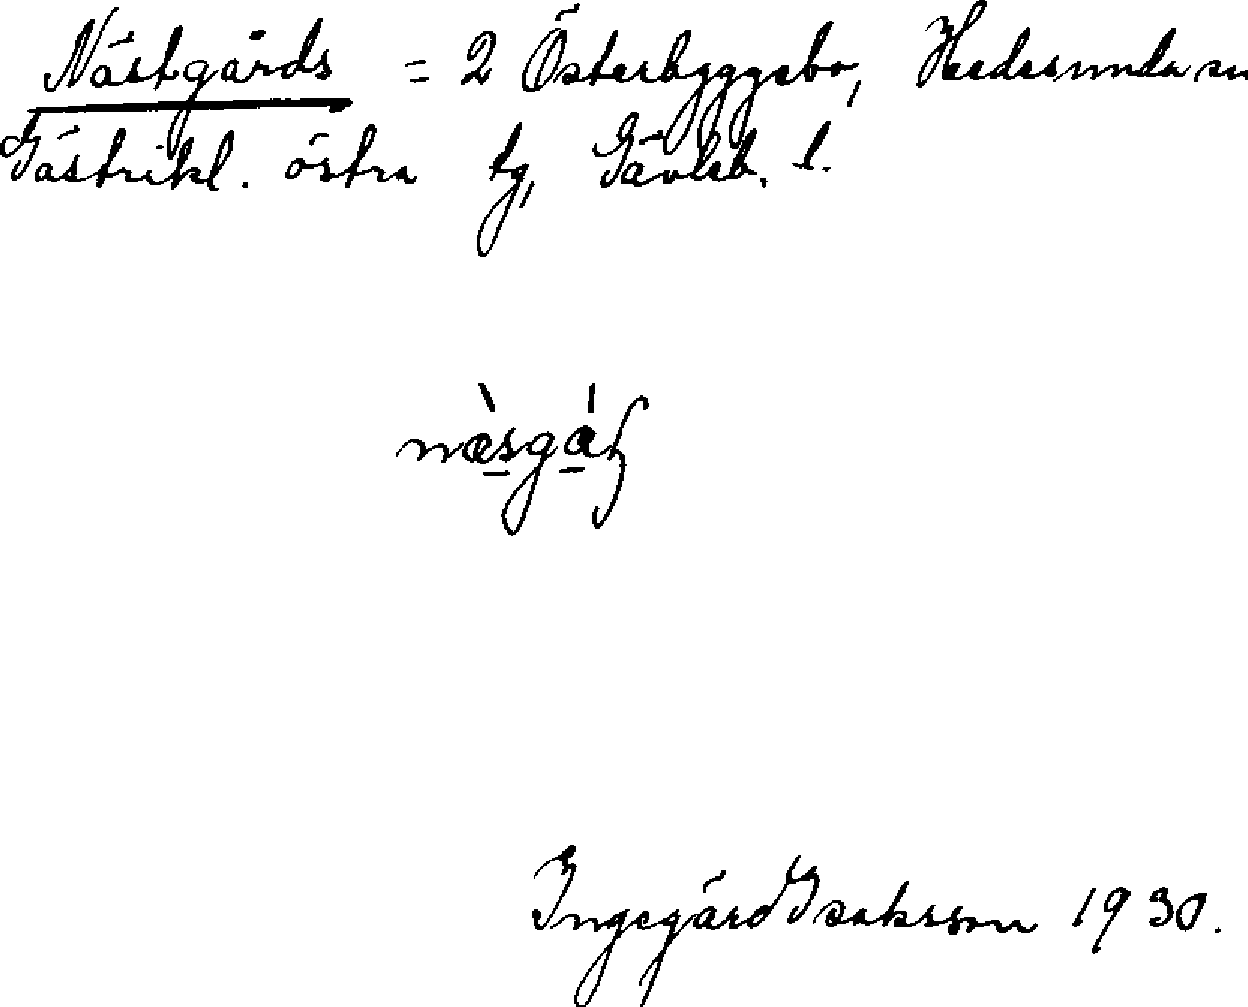 Nästgårds = 2 Österbyggebo, Hedesunda sn
Gästrikl. östra tg, Gävleb. l.
Ingegärd Isaksson 1930.